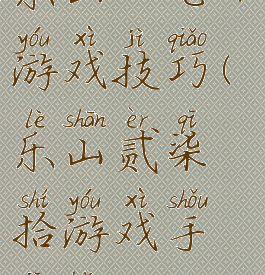 yóu xì jì qiǎo
游戏技巧(
lè shān èr qī
乐山贰柒
shí yóu xì shǒu
拾游戏手